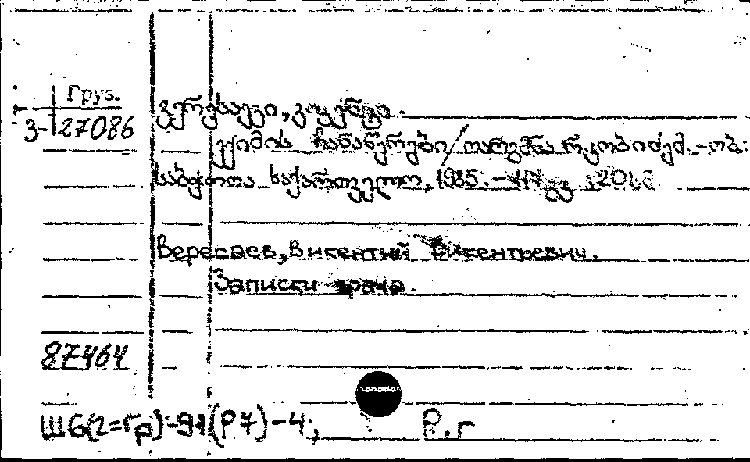 Груз.
3-27086
ვერესაევი, ვიკენტი.
ექიმის ჩანაწერები/თარგმნა რ. კობიძემ. -თბ.:
საბჭოთა საქართველო, 1985. -417 გვ. ;20სმ
Вересаев, Викентий Викентьевич.
Записки врача.
87464
Ш6(2=Гр)-91(Р7)-4;
Р.г